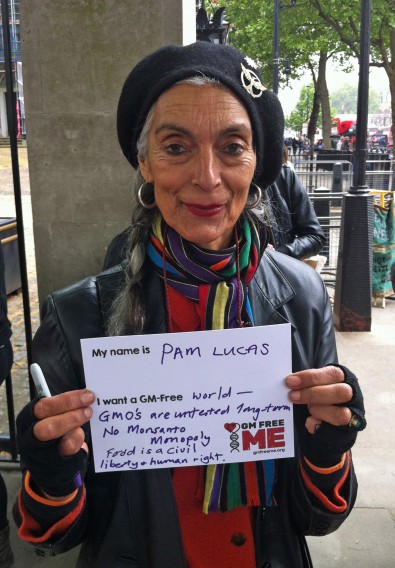 My name is PAM LUCAS
I want a GM-Free world —
GMO's are untested long-term
No Monsanto
Monopoly
Food is a civil
liberty + human right.
GM FREE
ME
gmfreeme.org